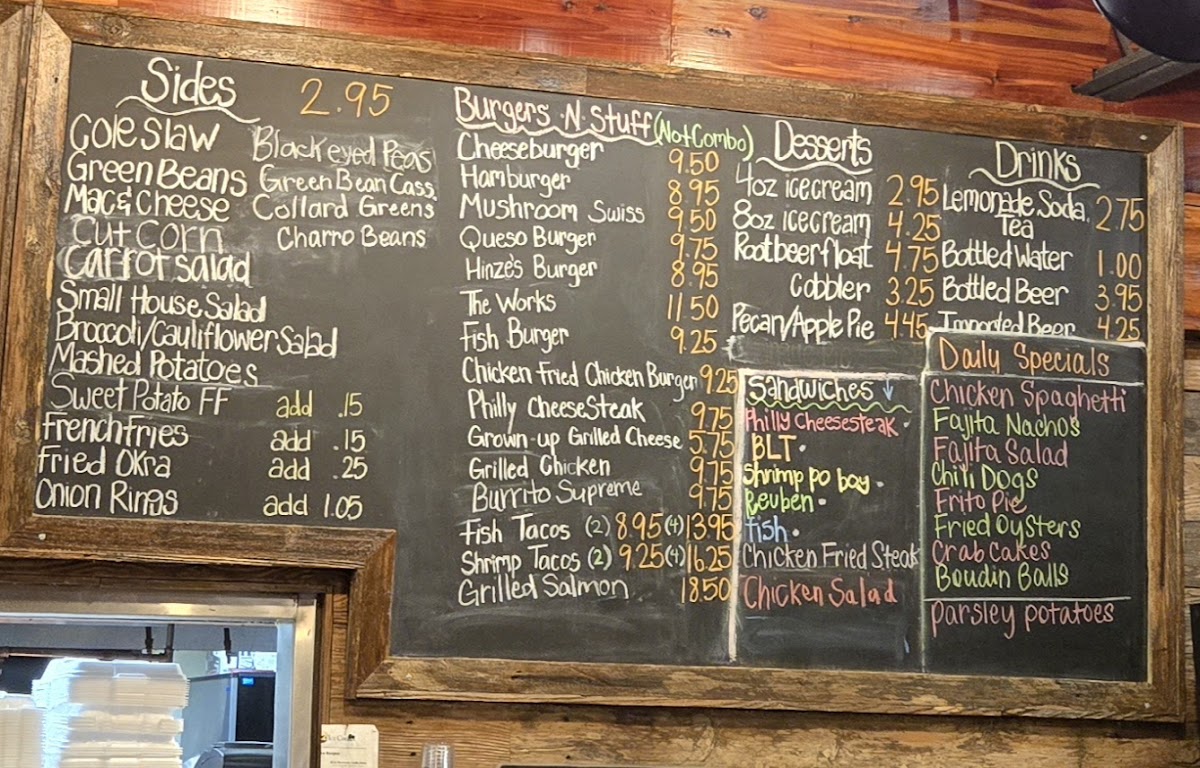 Sides 2.95
Cole Slaw Blackeyed Peas
Green Beans Green Bean Cass.
Mac & Cheese Collard Greens
Cut Corn Charro Beans
Carrot Salad
Small House Salad
Broccoli/Cauliflower Salad
Mashed Potatoes
Sweet Potato FF add .15
French Fries add .15
Fried Okra add .25
Onion Rings add 1.05
Burgers N Stuff (Not Combo)
Cheeseburger 9.50
Hamburger 8.95
Mushroom Swiss 9.50
Queso Burger 9.75
Hinze's Burger 8.95
The Works 11.50
Fish Burger 9.25
Chicken Fried Chicken Burger 9.25
Philly CheeseSteak 9.75
Grown-up Grilled Cheese 5.75
Grilled Chicken 9.75
Burrito Supreme 9.75
Fish Tacos (2) 8.95 (4) 13.95
Shrimp Tacos (2) 9.25 (4) 16.25
Grilled Salmon 18.50
Desserts
4oz ice cream 2.95
8oz ice cream 4.25
Rootbeer float 4.75
Cobbler 3.25
Pecan/Apple Pie 4.45
Drinks
Lemonade Soda, 2.75
Tea
Bottled Water 1.00
Bottled Beer 3.95
Imported Beer 4.25
Sandwiches ↓
Philly Cheesesteak •
BLT •
Shrimp po boy •
Reuben •
fish •
Chicken Fried Steak
Chicken Salad
Daily Specials
Chicken Spaghetti
Fajita Nachos
Fajita Salad
Chili Dogs
Frito Pie
Fried Oysters
Crab Cakes
Boudin Balls
parsley potatoes